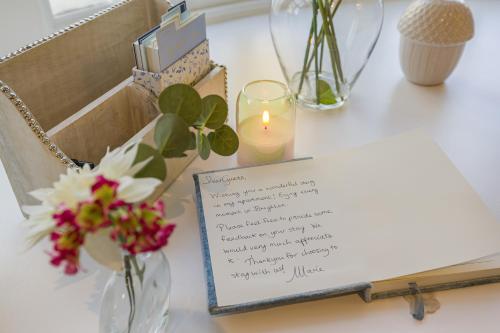 Dear Guests,
Wishing you a wonderful stay
in my apartment! Enjoy every
moment in Brighton.
Please feel free to provide some
feedback on your stay. We
would very much appreciate
it. Thankyou for choosing to
stay with us! Marie